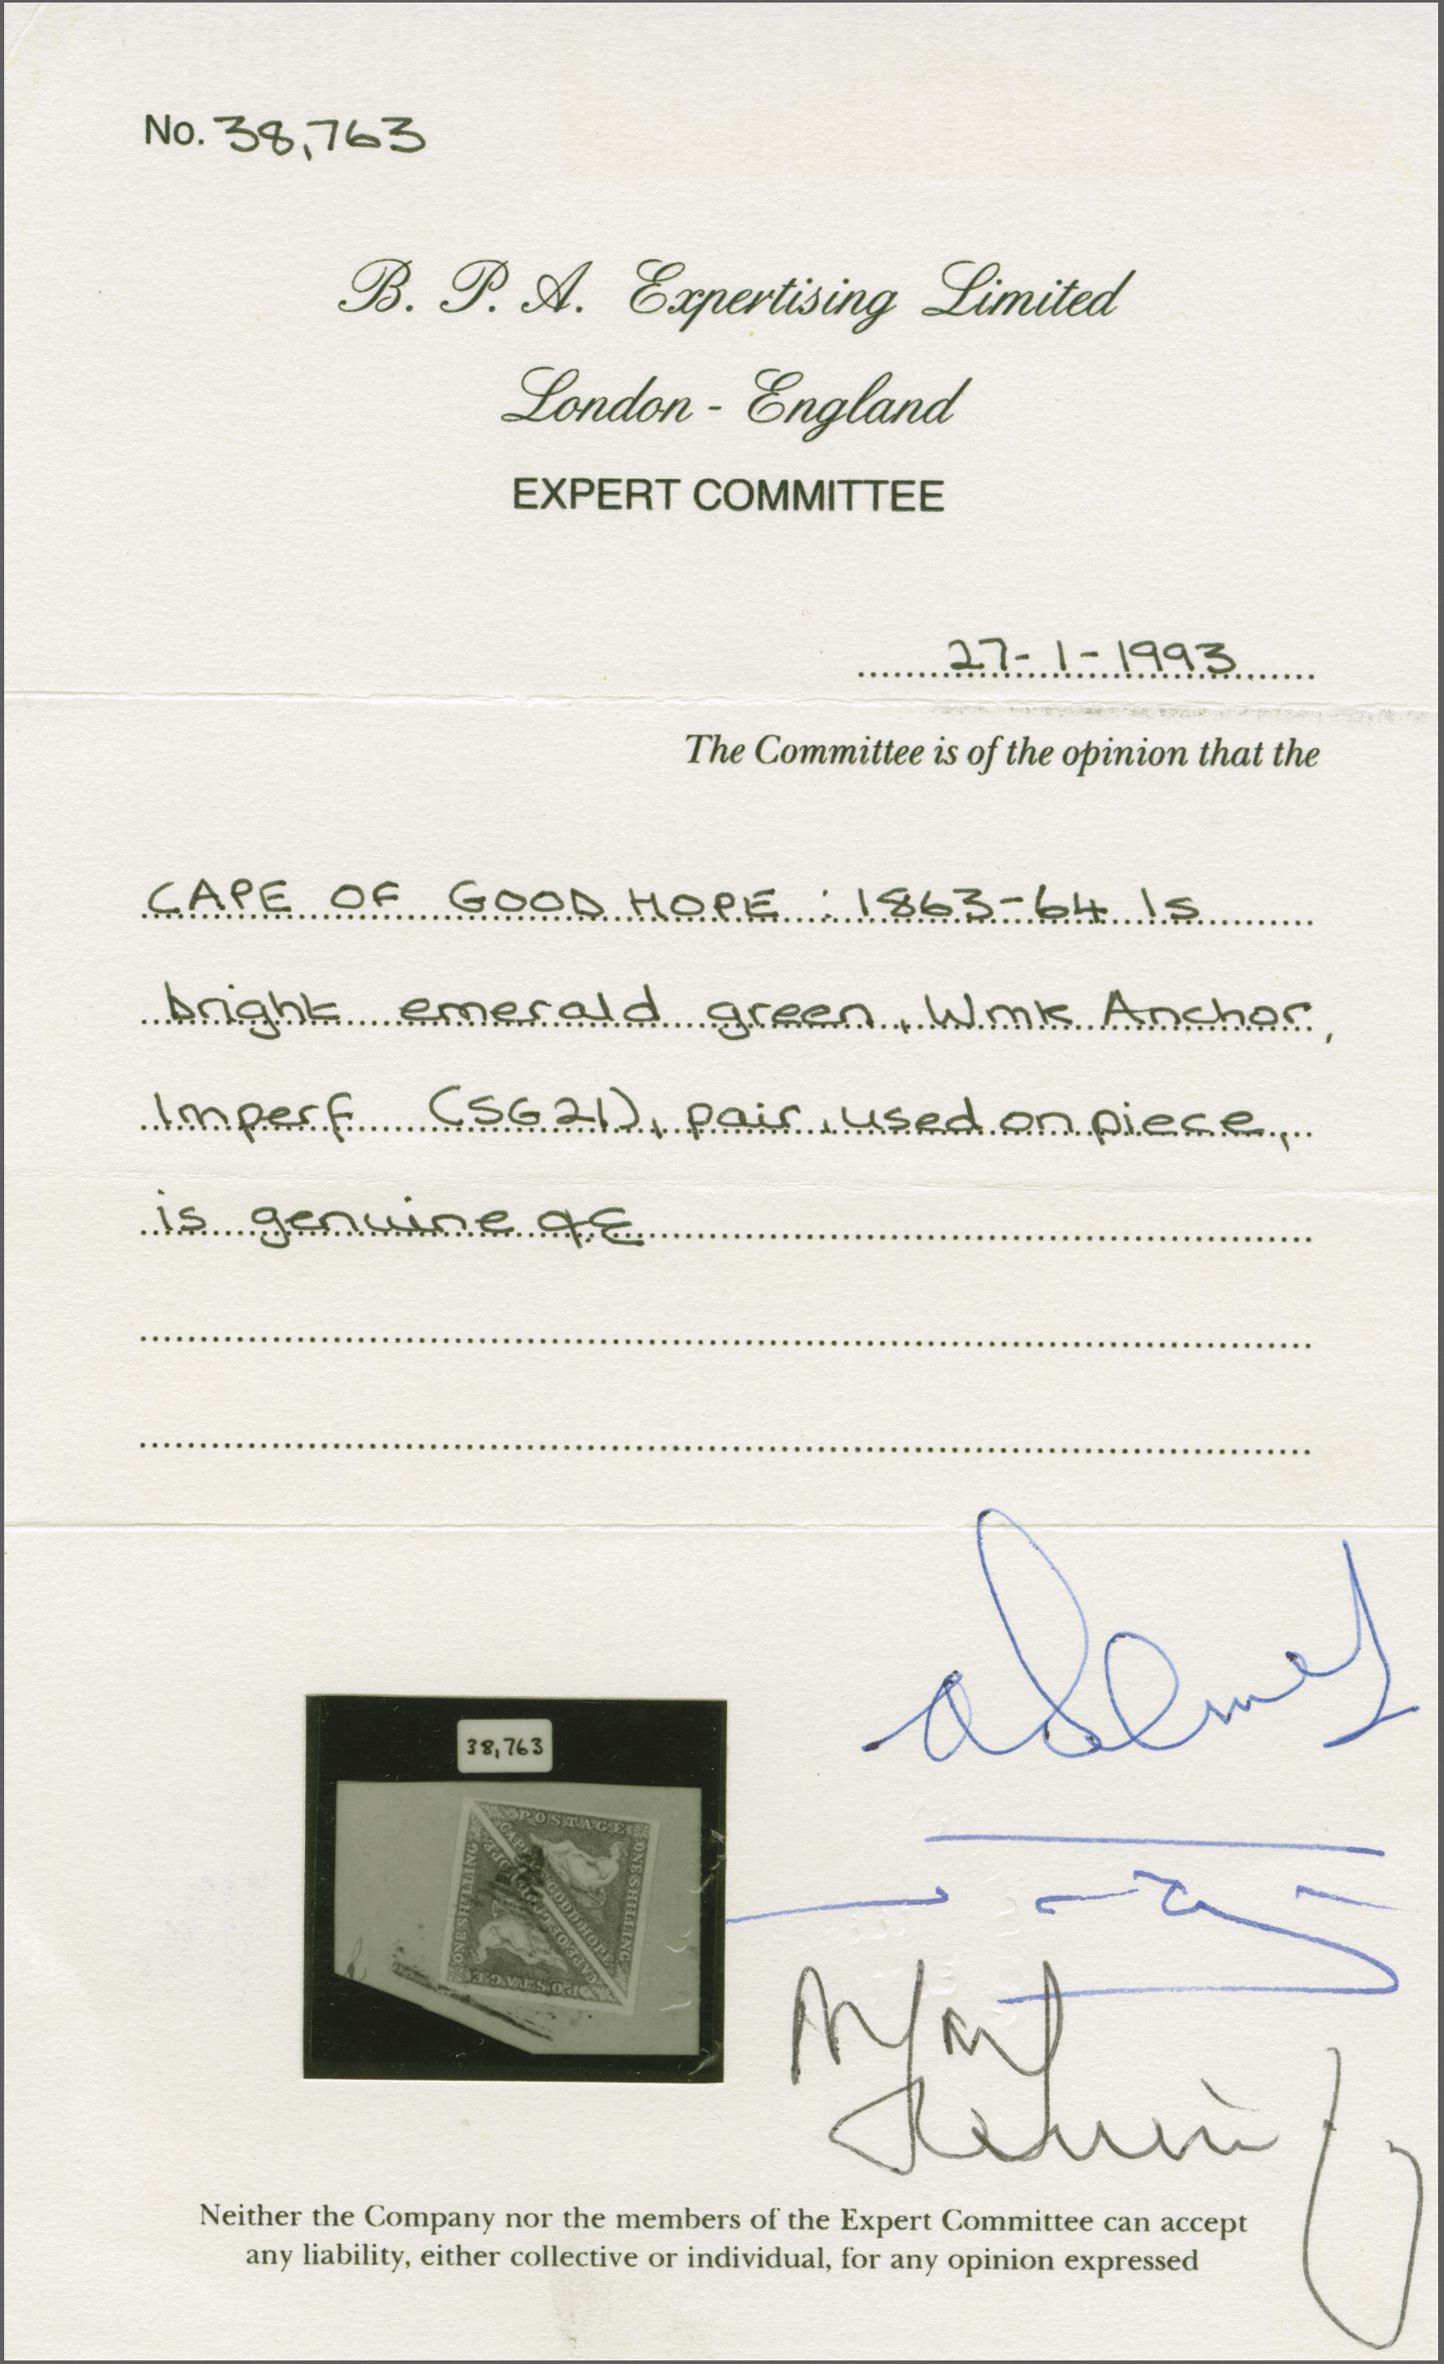 No. 38,763
B. P. A. Expertising Limited
London - England
EXPERT COMMITTEE
27-1-1993
The Committee is of the opinion that the
CAPE OF GOOD HOPE : 1863-64 1s
bright emerald green, Wmk Anchor,
Imperf (SG21), pair, used on piece,
is genuine
38,763
POSTAGE
ONE SHILLING
CAPE OF GOOD HOPE
CAPE OF GOOD HOPE
ONE SHILLING
POSTAGE
Neither the Company nor the members of the Expert Committee can accept
any liability, either collective or individual, for any opinion expressed